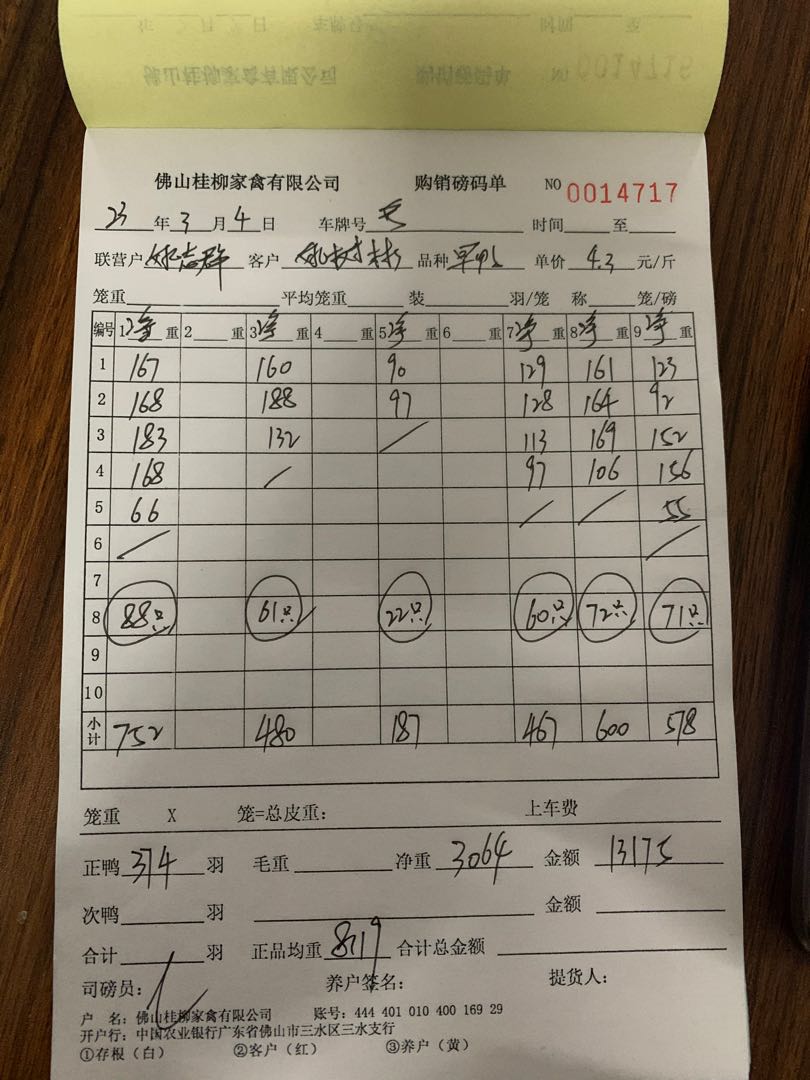 佛山桂柳家禽有限公司 购销磅码单 NO 0014717
23 年 3 月 4 日 车牌号 时间 至
联营户 客户 品种 单价 4.3 元/斤
笼重 平均笼重 装 羽/笼 称 笼/磅
编号 1 净 重 2 重 3 净 重 4 重 5 净 重 6 重 7 净 重 8 净 重 9 净 重
1 167 160 90 129 161 123
2 168 188 97 128 164 92
3 183 132 / 113 169 152
4 168 / 97 106 156
5 66 / / 55
6 / /
7
8 88只 61只 22只 60只 72只 71只
9
10
小计 752 480 187 467 600 578
笼重 X 笼=总皮重: 上车费
正鸭 374 羽 毛重 净重 3064 金额 13175
次鸭 羽 金额
合计 羽 正品均重 8.19 合计总金额
司磅员: 养户签名: 提货人:
户 名: 佛山桂柳家禽有限公司 账号: 444 401 010 400 169 29
开户行: 中国农业银行广东省佛山市三水区三水支行
①存根(白) ②客户(红) ③养户(黄)